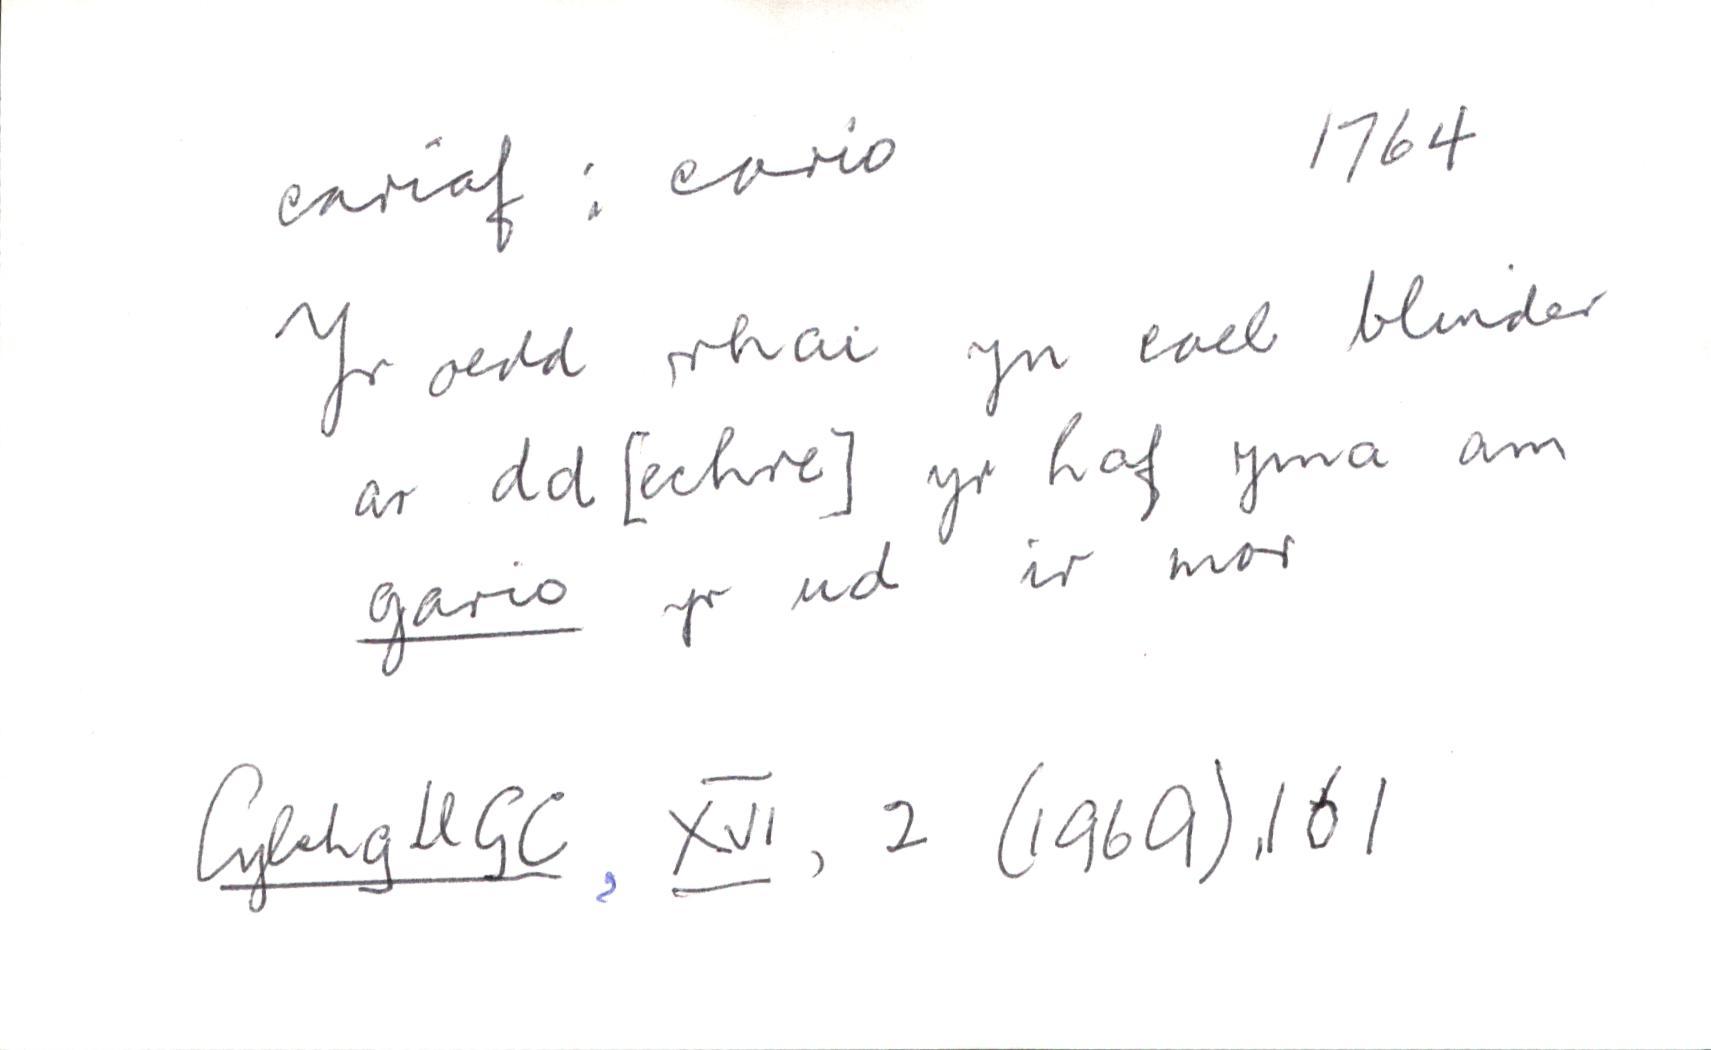 cariaf : cario 1764
Yr oedd rhai yn cael blinder
ar dd[echre] yr haf yma am
gario yr ud ir mor
CylchgLlGC, XVI, 2 (1969), 161